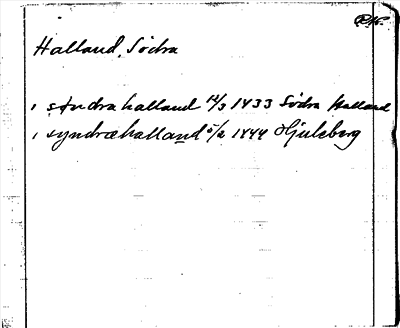 Halland, Södra
i syndra halland 12/3 1433 Södra Halland
i syndræhalland 5/2 1444 Hjuleberg